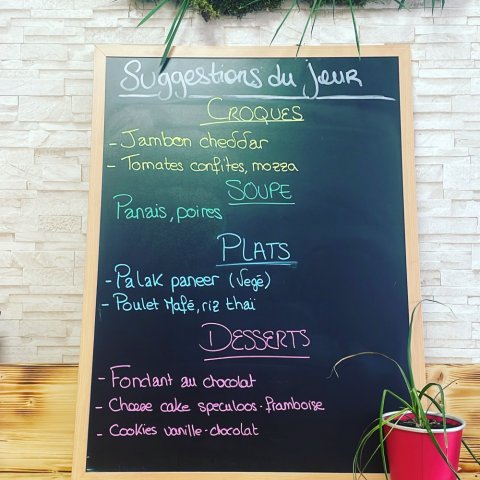 Suggestions du jour
CROQUES
- Jambon cheddar
- Tomates confites, mozza
SOUPE
Panais, poires
PLATS
- Palak paneer (Vegé)
- Poulet Mafé, riz thaï
DESSERTS
- Fondant au chocolat
- Cheese cake speculoos - framboise
- Cookies vanille - chocolat